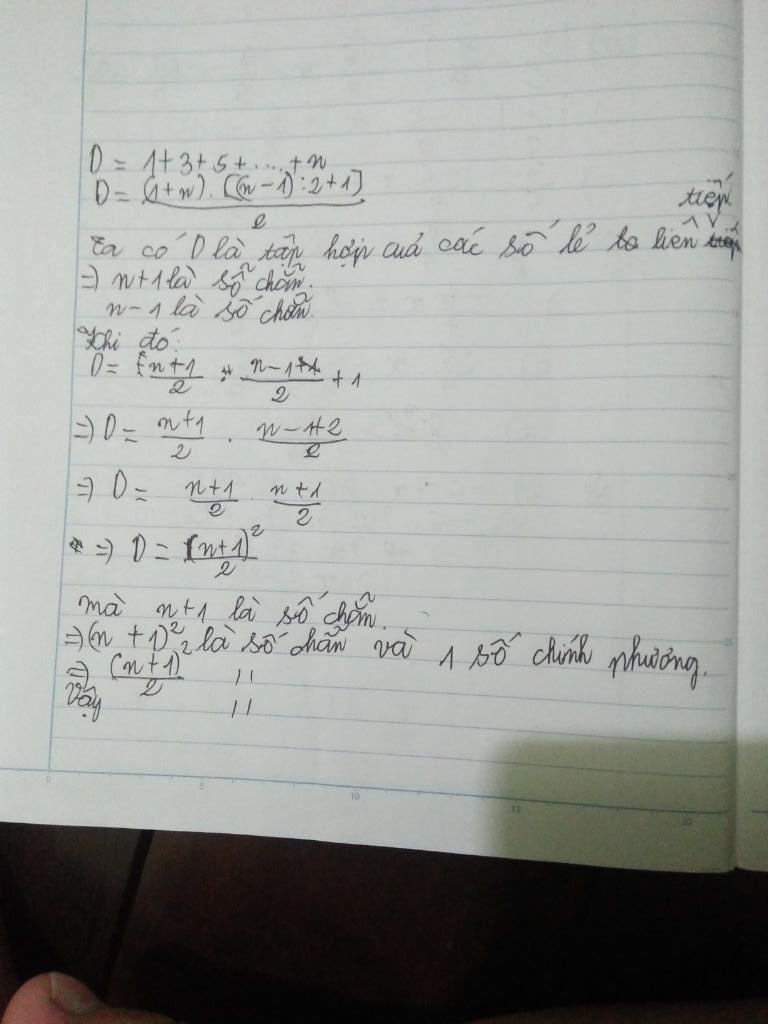 D = 1+3+5+....+n
D = (1+n).[(n-1):2+1] / 2
Ta có D là tập hợp cuả các số lẻ liên tiếp
=) n+1 là số chẵn.
n-1 là số chẵn.
Khi đó:
D = n+1/2 . n-1/2 + 1
=) D = n+1/2 . n-1+2/2
=) D = n+1/2 . n+1/2
=) D = (n+1)²/2
mà n+1 là số chẵn.
=) (n+1)² là số chẵn và 1 số chính phương.
=) (n+1)²/2 "
Vậy "
0 5 10 15 20